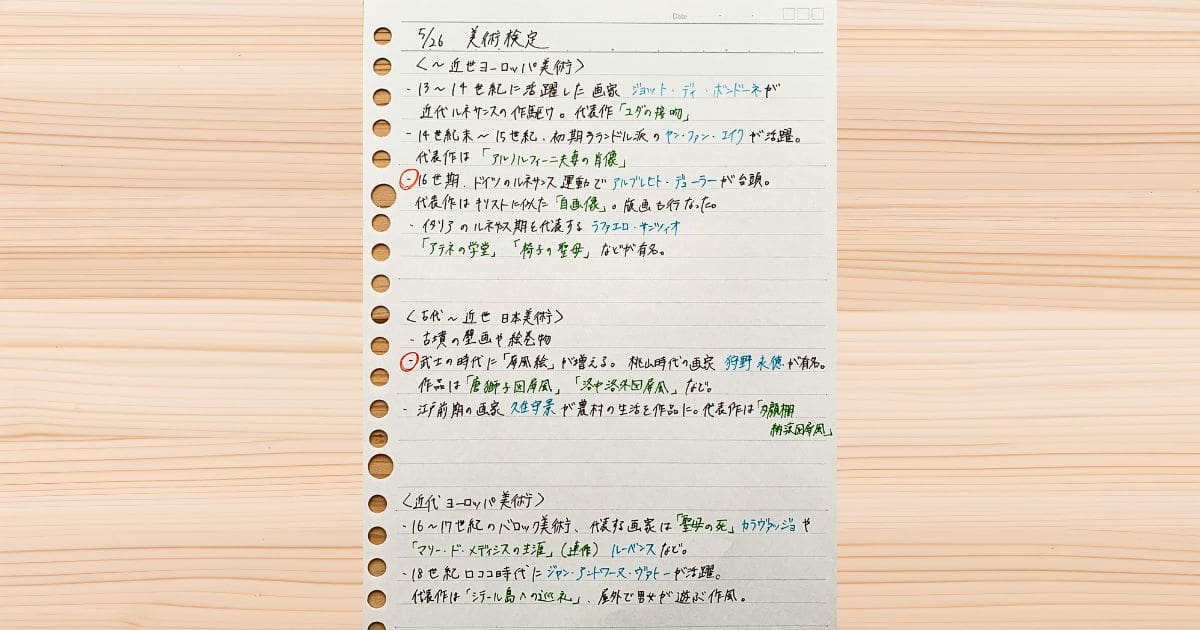 Date
5/26 美術検定
〈～近世ヨーロッパ美術〉
・13～14世紀に活躍した画家 ジョット・ディ・ボンドーネが
近代ルネサンスの先駆け。代表作「ユダの接吻」
・14世紀末～15世紀、初期フランドル派のヤン・ファン・エイクが活躍。
代表作は「アルノルフィーニ夫妻の肖像」
・16世期、ドイツのルネサンス運動でアルブレヒト・デューラーが台頭。
代表作はキリストに似た「自画像」。版画も行なった。
・イタリアのルネサンス期を代表する ラファエロ・サンツィオ
「アテネの学堂」「椅子の聖母」などが有名。
〈古代～近世 日本美術〉
・古墳の壁画や絵巻物
・武士の時代に「屏風絵」が増える。桃山時代の画家 狩野永徳が有名。
作品は「唐獅子図屏風」「洛中洛外図屏風」など。
・江戸前期の画家 久住守景が農村の生活を作品に。代表作は「夕顔棚
納涼図屏風」
〈近代ヨーロッパ美術〉
・16～17世紀のバロック美術、代表する画家は「聖母の死」カラヴァッジョや
「マリー・ド・メディシスの生涯」(連作) ルーベンスなど。
・18世紀ロココ時代にジャン・アントワーヌ・ヴァトーが活躍。
代表作は「シテール島への巡礼」、屋外で男女が遊ぶ作風。